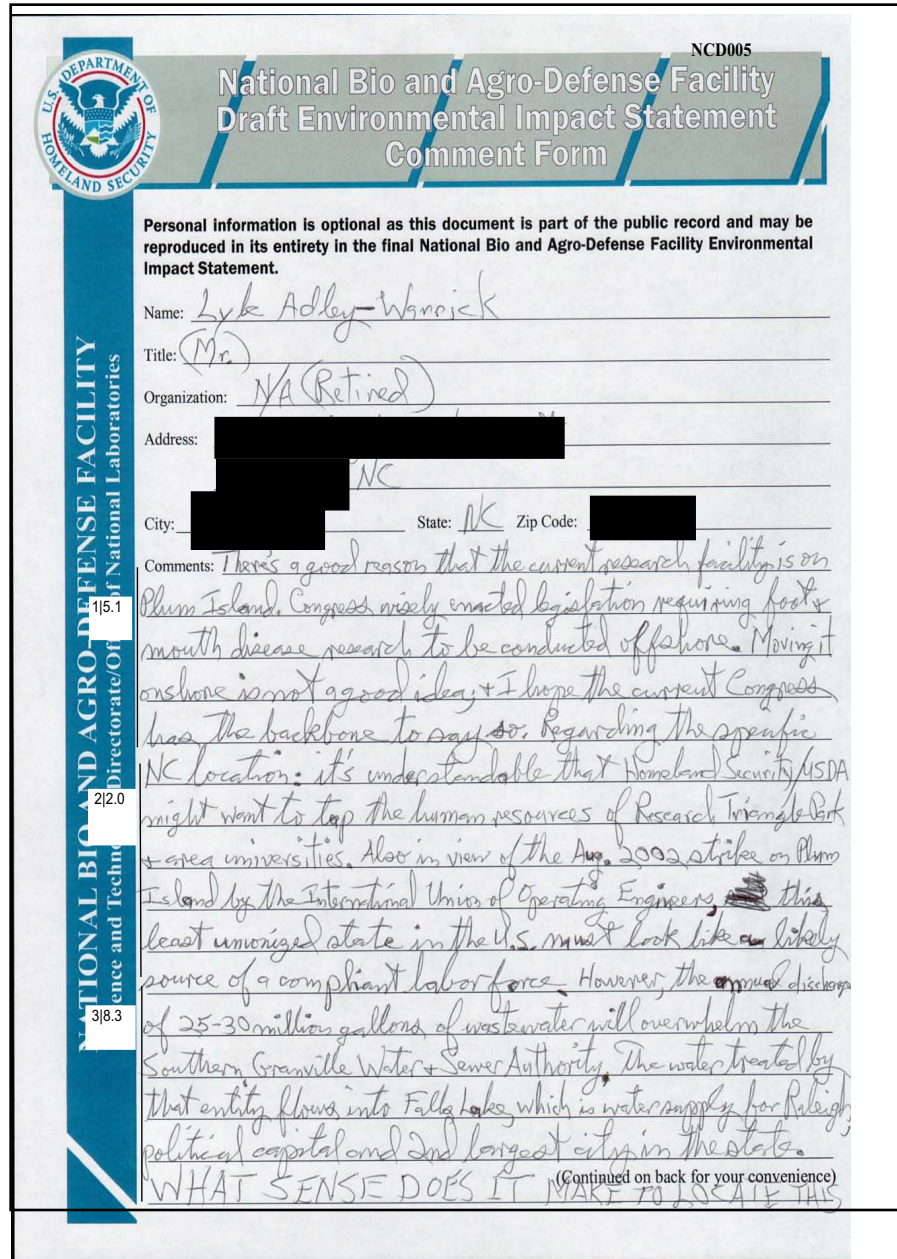 NCD005
U.S. DEPARTMENT OF HOMELAND SECURITY
National Bio and Agro-Defense Facility
Draft Environmental Impact Statement
Comment Form
Personal information is optional as this document is part of the public record and may be
reproduced in its entirety in the final National Bio and Agro-Defense Facility Environmental
Impact Statement.
Name: Lyle Adley-Warrick
Title: (Mr.)
Organization: N/A (Retired)
Address:
NC
City: State: NC Zip Code:
Comments: There's a good reason that the current research facility is on
Plum Island. Congress wisely enacted legislation requiring foot +
mouth disease research to be conducted offshore. Moving it
onshore is not a good idea, + I hope the current Congress
has the backbone to say so. Regarding the specific
NC location: it's understandable that Homeland Security/USDA
might want to tap the human resources of Research Triangle Park
+ area universities. Also in view of the Aug. 2002 strike on Plum
Island by the International Union of Operating Engineers, this
least unionized state in the U.S. must look like a likely
source of a compliant labor force. However, the annual discharge
of 25-30 million gallons of wastewater will overwhelm the
Southern Granville Water + Sewer Authority. The water treated by
that entity flows into Falls Lake, which is water supply for Raleigh,
political capital and 2nd largest city in the state.
(Continued on back for your convenience)
WHAT SENSE DOES IT MAKE TO LOCATE THIS
1|5.1
2|2.0
3|8.3
NATIONAL BIO AND AGRO-DEFENSE FACILITY
ence and Techno Directorate/Of of National Laboratories